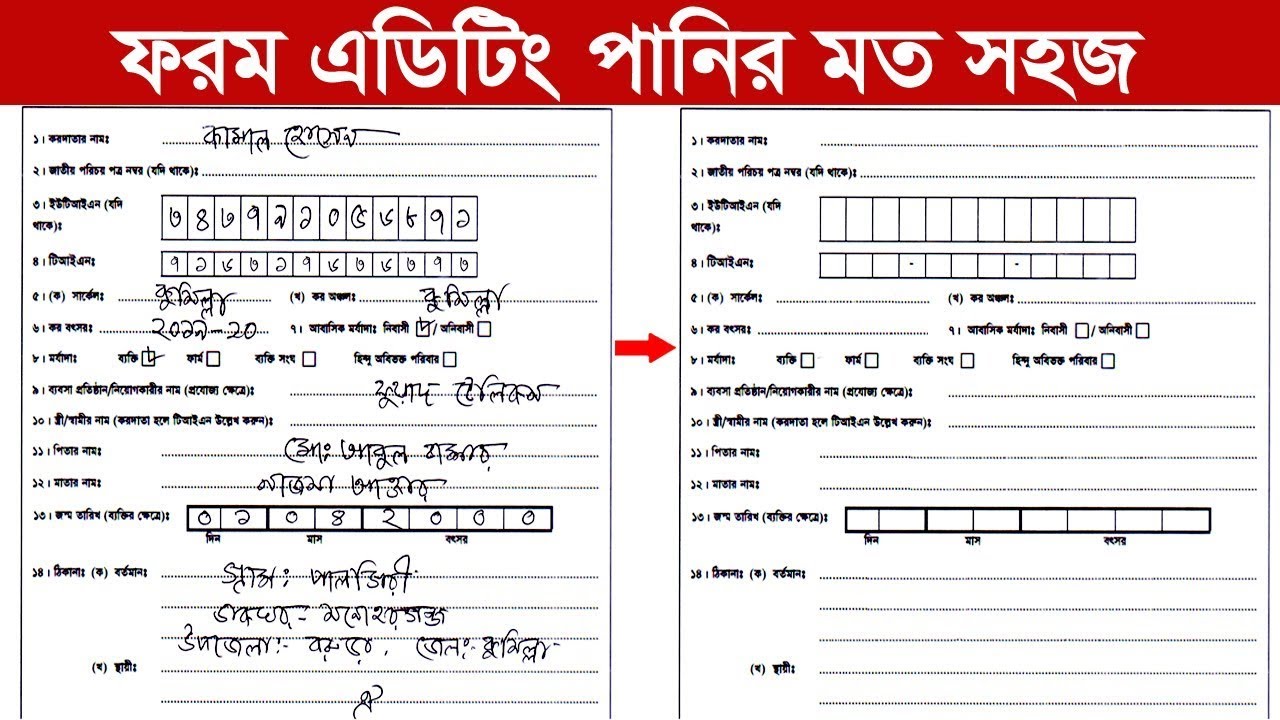 ফরম এডিটিং পানির মত সহজ
১। করদাতার নাম: কামাল হোসেন
২। জাতীয় পরিচয় পত্র নম্বর (যদি থাকে):
৩। ইউটিআইএন (যদি থাকে): ৩ ৪ ৩ ৭ ৯ ১ ০ ৫ ৬ ৮ ৭ ১
৪। টিআইএন: ৭ ১ ৬ ৩ ১ ৭ ৬ ৩ ৬ ৩ ৭ ৩
৫। (ক) সার্কেল: কুমিল্লা (খ) কর অঞ্চল: কুমিল্লা
৬। কর বৎসর: ২০১৯-২০ ৭। আবাসিক মর্যাদা: নিবাসী / অনিবাসী
৮। মর্যাদা: ব্যক্তি ফার্ম ব্যক্তি সংঘ হিন্দু অবিভক্ত পরিবার
৯। ব্যবসা প্রতিষ্ঠান/নিয়োগকারীর নাম (প্রযোজ্য ক্ষেত্রে): ফুয়াদ টেলিকম
১০। স্ত্রী/স্বামীর নাম (করদাতা হলে টিআইএন উল্লেখ করুন):
১১। পিতার নাম: মো: আবুল বাশার
১২। মাতার নাম: নাজমা আক্তার
১৩। জন্ম তারিখ (ব্যক্তির ক্ষেত্রে): ০ ১ ০ ৪ ২ ০ ০ ০
দিন মাস বৎসর
১৪। ঠিকানা: (ক) বর্তমান: গ্রাম: পালজিরী
ডাকঘর- মনোহরগঞ্জ
উপজেলা:- বরুড়া, জেলা:- কুমিল্লা
(খ) স্থায়ী:
ঐ
১। করদাতার নাম:
২। জাতীয় পরিচয় পত্র নম্বর (যদি থাকে):
৩। ইউটিআইএন (যদি
থাকে):
৪। টিআইএন: - -
৫। (ক) সার্কেল: (খ) কর অঞ্চল:
৬। কর বৎসর: ৭। আবাসিক মর্যাদা: নিবাসী / অনিবাসী
৮। মর্যাদা: ব্যক্তি ফার্ম ব্যক্তি সংঘ হিন্দু অবিভক্ত পরিবার
৯। ব্যবসা প্রতিষ্ঠান/নিয়োগকারীর নাম (প্রযোজ্য ক্ষেত্রে):
১০। স্ত্রী/স্বামীর নাম (করদাতা হলে টিআইএন উল্লেখ করুন):
১১। পিতার নাম:
১২। মাতার নাম:
১৩। জন্ম তারিখ (ব্যক্তির ক্ষেত্রে):
দিন মাস বৎসর
১৪। ঠিকানা: (ক) বর্তমান:
(খ) স্থায়ী: